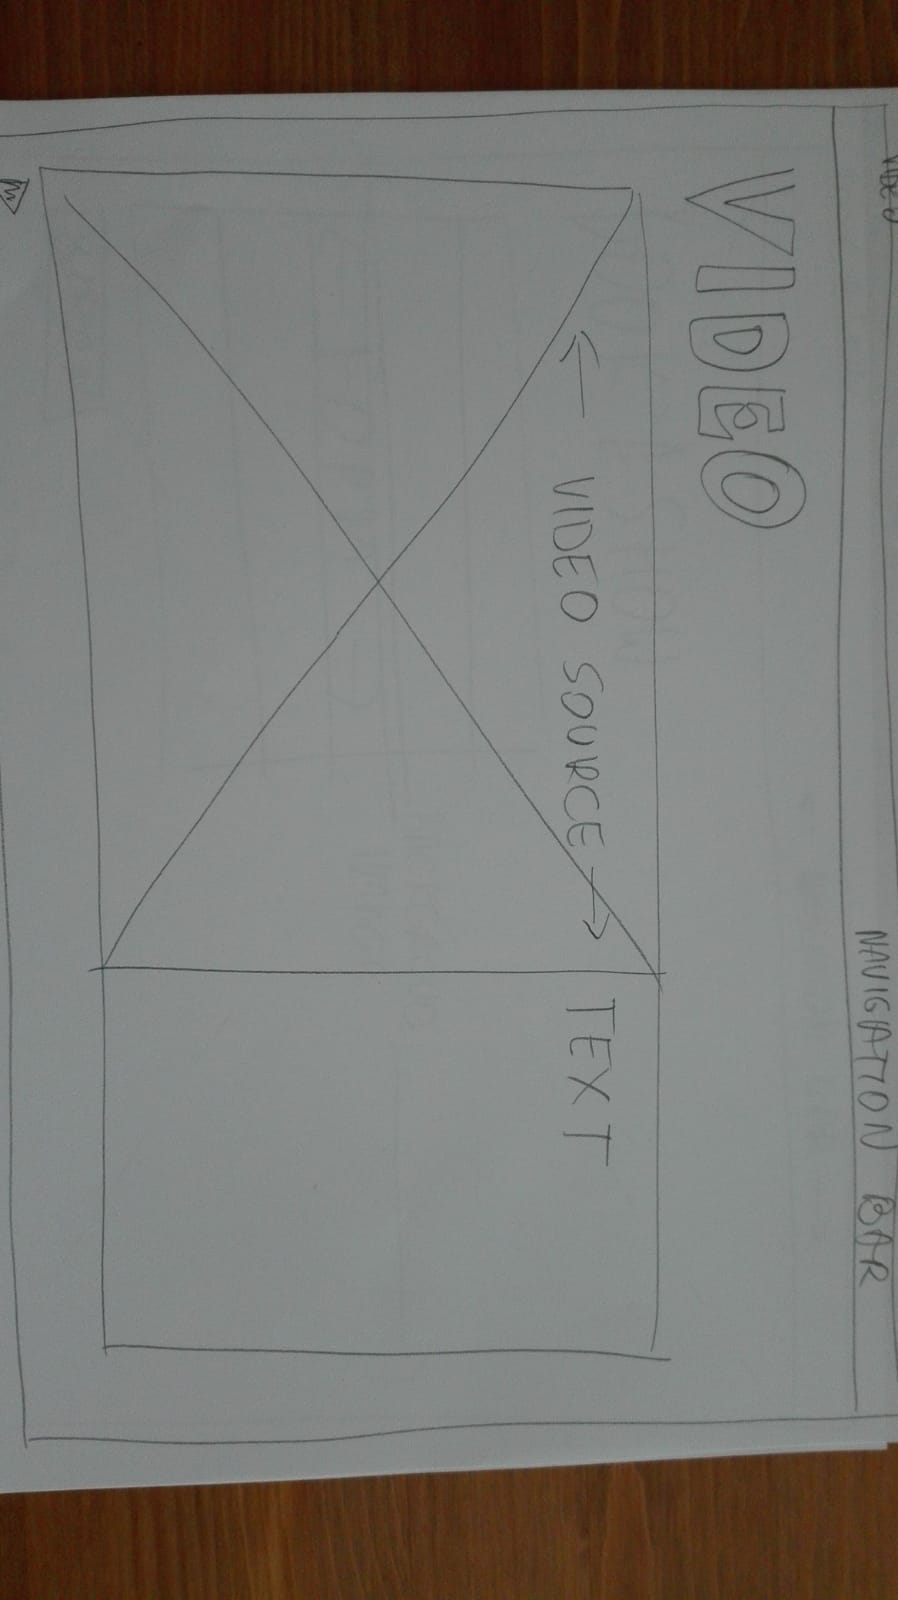 VIDEO
NAVIGATION BAR
VIDEO
← VIDEO SOURCE →
TEXT